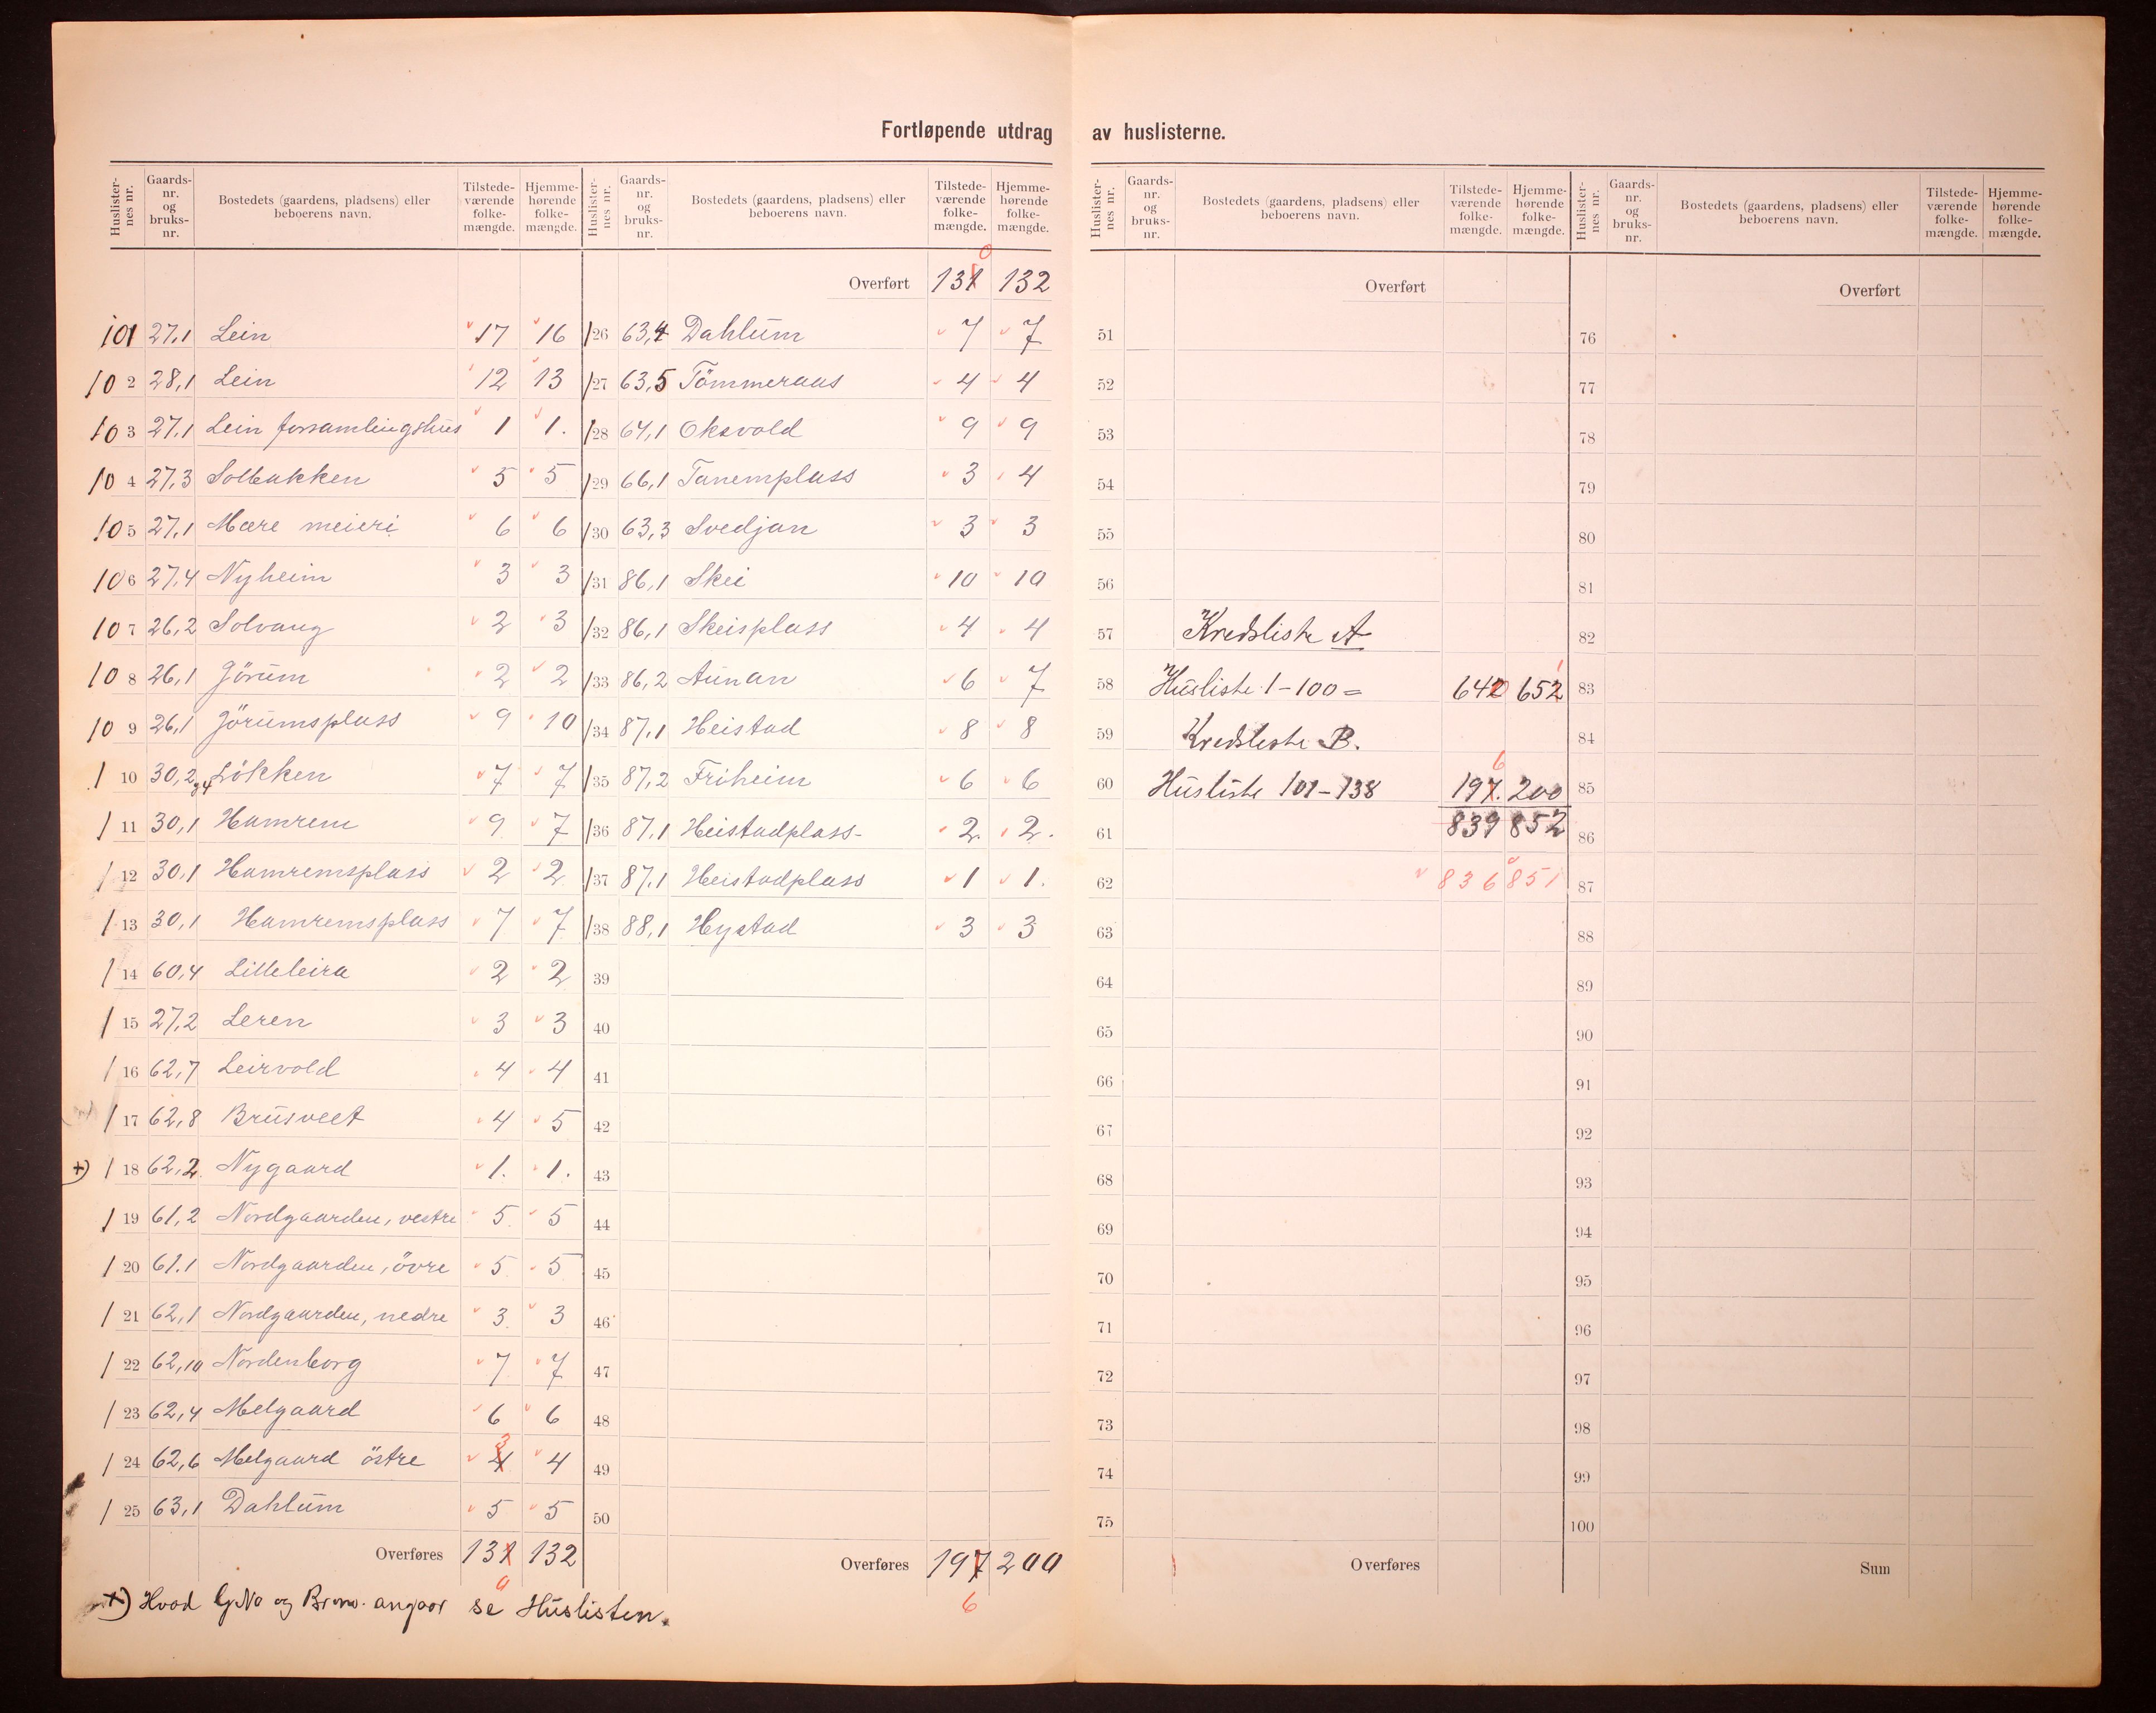 Fortløpende utdrag av huslisterne.
Huslister-nes nr. Gaards-nr. og bruks-nr. Bostedets (gaardens, pladsens) eller beboerens navn. Tilstede-værende folke-mængde. Hjemme-hørende folke-mængde.
101 27,1 Lein 17 16
10 2 28,1 Lein 12 13
10 3 27,1 Lein forsamlingshus 1 1.
10 4 27,3 Solbakken 5 5
10 5 27,1 Mære meieri 6 6
10 6 27,4 Nyheim 3 3
10 7 26,2 Solvang 2 3
10 8 26,1 Jörum 2 2
10 9 26,1 Jörumsplass 9 10
1 10 30,2 og 4 Lökken 7 7
1 11 30,1 Hamrem 9 7
1 12 30,1 Hamremsplass 2 2
1 13 30,1 Hamremsplass 7 7
1 14 60,4 Lilleleira 2 2
1 15 27,2 Leren 3 3
1 16 62,7 Leirvold 4 4
1 17 62,8 Brusveet 4 5
+) 1 18 62,2 Nygaard 1. 1.
1 19 61,2 Nordgaarden, vestre 5 5
1 20 61.1 Nordgaarden, övre 5 5
1 21 62,1 Nordgaarden, nedre 3 3
1 22 62,10 Nordenborg 7 7
1 23 62,4 Melgaard 6 6
1 24 62,6 Melgaard östre 4 3 4
1 25 63,1 Dahlum 5 5
Overføres 131 0 132
+) Hvad G.No og Br.no. angaar se Huslisten.
Huslister-nes nr. Gaards-nr. og bruks-nr. Bostedets (gaardens, pladsens) eller beboerens navn. Tilstede-værende folke-mængde. Hjemme-hørende folke-mængde.
Overført 131 0 132
1 26 63,4 Dahlum 7 7
1 27 63,5 Tömmeraas 4 4
1 28 64,1 Oksvold 9 9
1 29 66,1 Tanemplass 3 4
1 30 63,3 Svedjan 3 3
1 31 86,1 Skei 10 10
1 32 86,1 Skeisplass 4 4
1 33 86,2 Aunan 6 7
1 34 87,1 Heistad 8 8
1 35 87,2 Friheim 6 6
1 36 87,1 Heistadplass- 2. 2.
1 37 87.1 Heistadplass 1 1.
1 38 88,1 Hystad 3 3
39
40
41
42
43
44
45
46
47
48
49
50
Overføres 197 6 200
Huslister-nes nr. Gaards-nr. og bruks-nr. Bostedets (gaardens, pladsens) eller beboerens navn. Tilstede-værende folke-mængde. Hjemme-hørende folke-mængde.
Overført
51
52
53
54
55
56
57 Kredsliste A
58 Husliste 1-100 = 640 652 1
59 Kredsliste B.
60 Husliste 101-138 197. 6 200
61 839 852
62 836 851
63
64
65
66
67
68
69
70
71
72
73
74
75
Overføres
Huslister-nes nr. Gaards-nr. og bruks-nr. Bostedets (gaardens, pladsens) eller beboerens navn. Tilstede-værende folke-mængde. Hjemme-hørende folke-mængde.
Overført
76
77
78
79
80
81
82
83
84
85
86
87
88
89
90
91
92
93
94
95
96
97
98
99
100
Sum